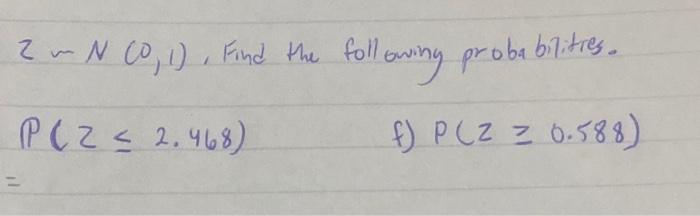 Z ~ N (0,1), Find the following probabilitres.
P(Z ≤ 2.468) f) P(Z ≥ 0.588)
=